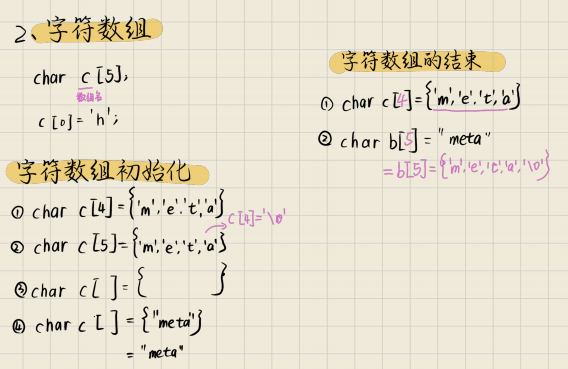 2、字符数组
char c[5];
数组名
c[0]='h';
字符数组初始化
① char c[4]={'m','e','t','a'}
② char c[5]={'m','e','t','a'}
c[4]='\0'
③ char c[ ]={ }
④ char c[ ]={"meta"}
="meta"
字符数组的结束
① char c[4]={'m','e','t','a'}
② char b[5]="meta"
=b[5]={'m','e','t','a','\0'}